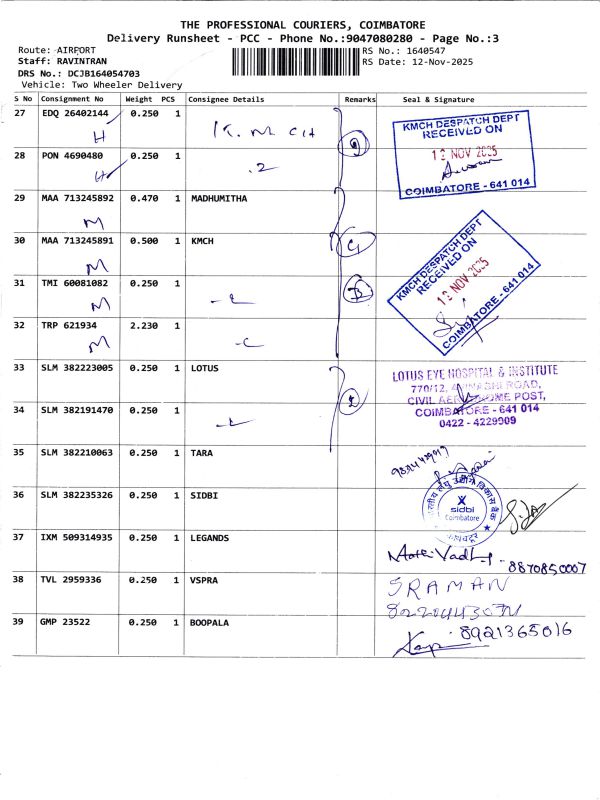 THE PROFESSIONAL COURIERS, COIMBATORE
Delivery Runsheet - PCC - Phone No.:9047080280 - Page No.:3
Route: AIRPORT
RS No.: 1640547
Staff: RAVINTRAN
RS Date: 12-Nov-2025
DRS No.: DCJB164054703
Vehicle: Two Wheeler Delivery
S No Consignment No Weight PCS Consignee Details Remarks Seal & Signature
27 EDQ 26402144 0.250 1
H
28 PON 4690480 0.250 1
H
KMCH DESPATCH DEPT
RECEIVED ON
NOV 2025
COIMBATORE - 641 014
29 MAA 713245892 0.470 1 MADHUMITHA
M
30 MAA 713245891 0.500 1 KMCH
M
31 TMI 60081082 0.250 1
M
32 TRP 621934 2.230 1
M
KMCH DESPATCH DEPT
RECEIVED ON
NOV 2025
COIMBATORE - 641 014
33 SLM 382223005 0.250 1 LOTUS
34 SLM 382191470 0.250 1
LOTUS EYE HOSPITAL & INSTITUTE
770/12, ROAD,
CIVIL POST,
COIMBATORE - 641 014
0422 - 4229909
35 SLM 382210063 0.250 1 TARA
36 SLM 382235326 0.250 1 SIDBI
sidbi
Coimbatore
37 IXM 509314935 0.250 1 LEGANDS
8870850007
38 TVL 2959336 0.250 1 VSPRA
SRAMAN
39 GMP 23522 0.250 1 BOOPALA
8921365016